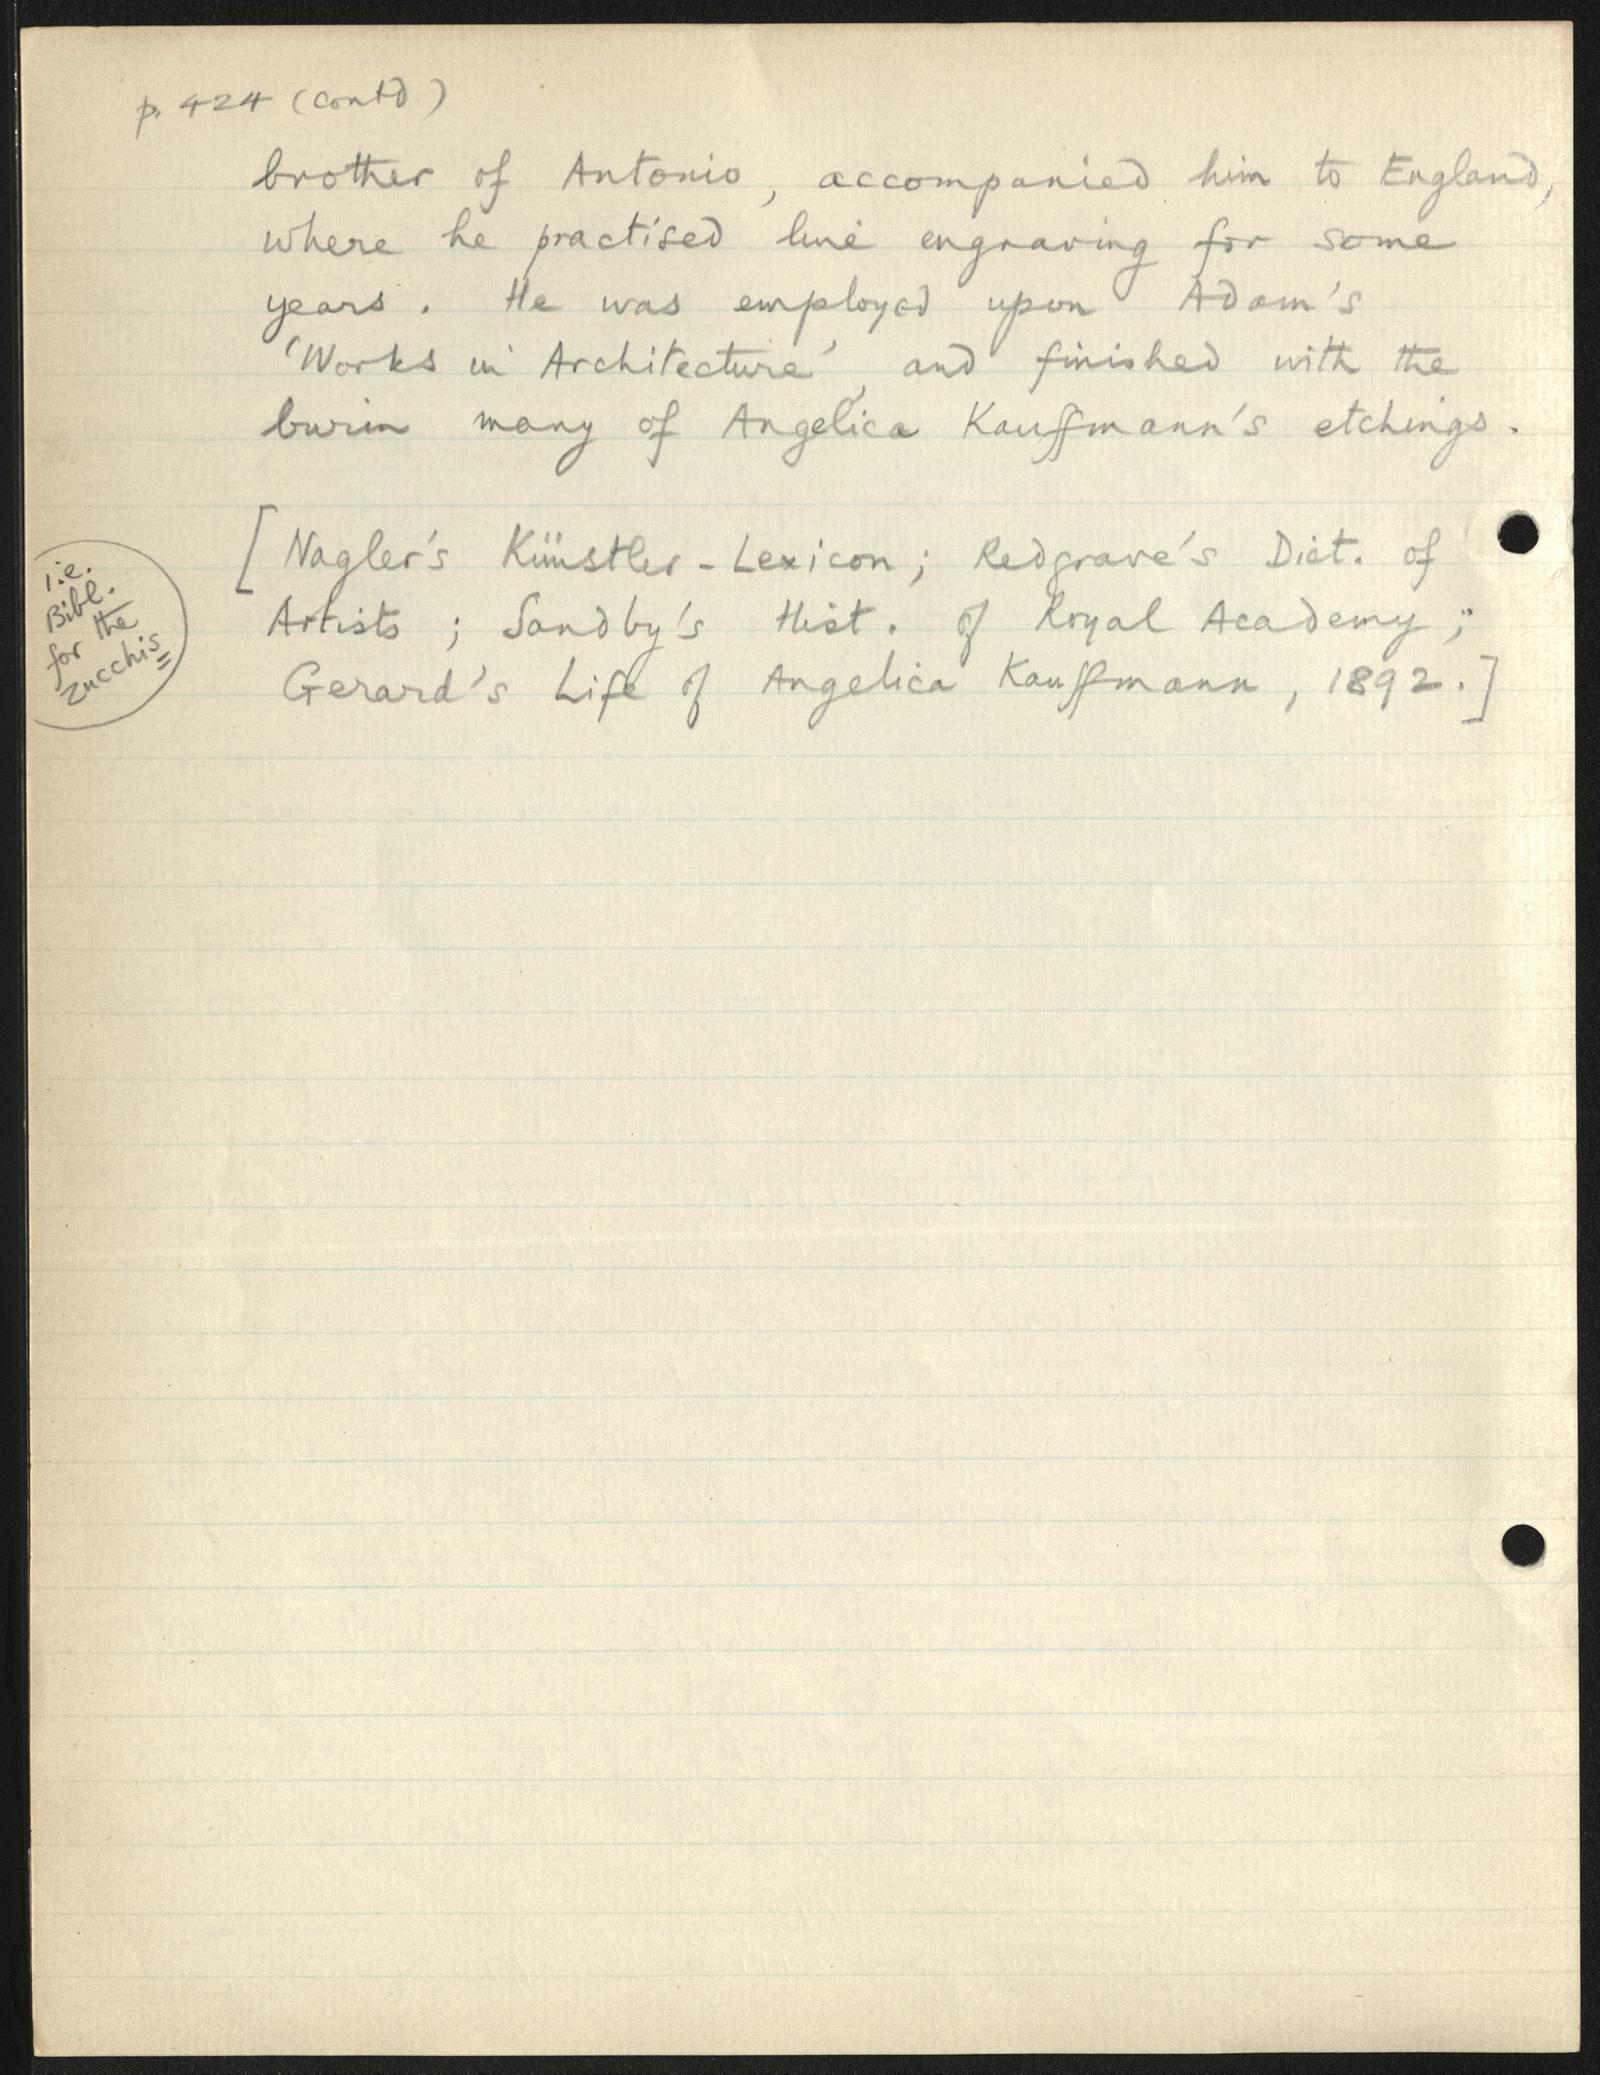 p. 424 (contd)
brother of Antonio, accompanied him to England,
where he practised line engraving for some
years. He was employed upon Adam's
'Works in Architecture', and finished with the
burin many of Angelica Kauffmann's etchings.
[Nagler's Künstler-Lexicon; Redgrave's Dict. of
Artists; Sandby's Hist. of Royal Academy;
Gerard's Life of Angelica Kauffmann, 1892.]
i.e.
Bibl.
for the
Zucchis